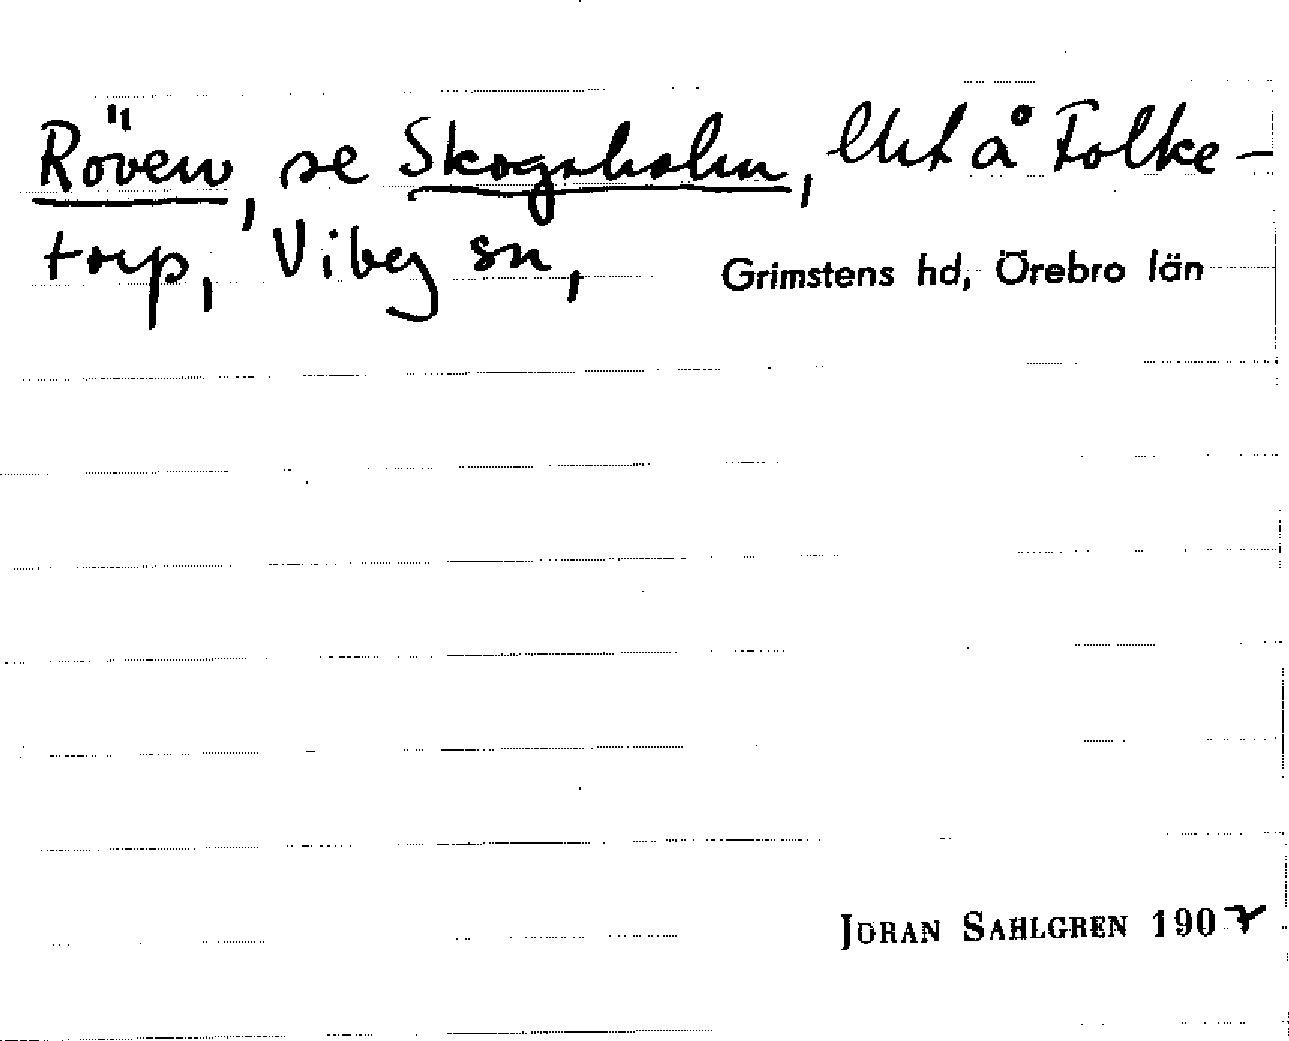 Röven, se Skogsholm, lht å Folke-
torp, Viby sn, Grimstens hd, Örebro län
JÖRAN SAHLGREN 1907